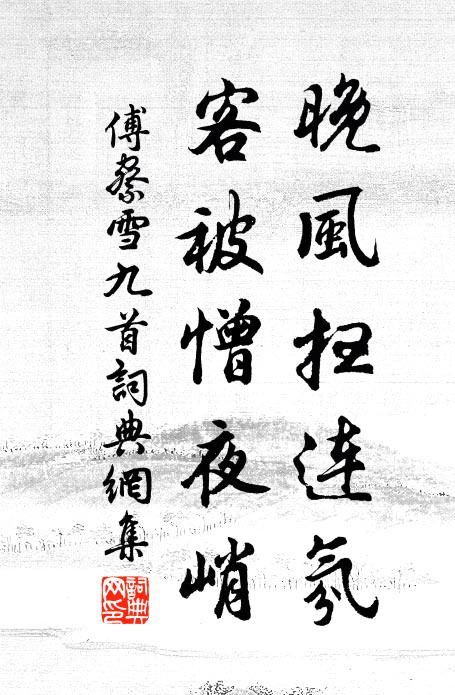 晚風狂連氛
客被憎夜峭
傅察雪九首詞典網集
詞典网印